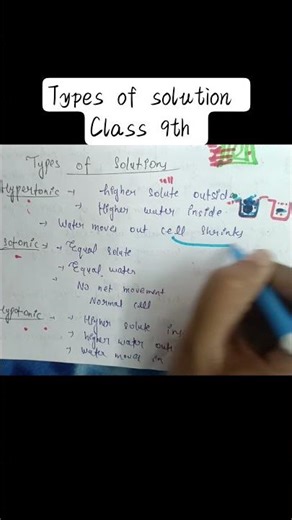 Types of solution
Class 9th
Types of Solutions
cell
Hypertonic → higher solute outside
→ Higher water inside
→ Water moves out cell shrinks
Isotonic → Equal solute
→ Equal water
→ No net movement
Normal cell
Hypotonic → Higher solute
→ higher water
→ Water moves in